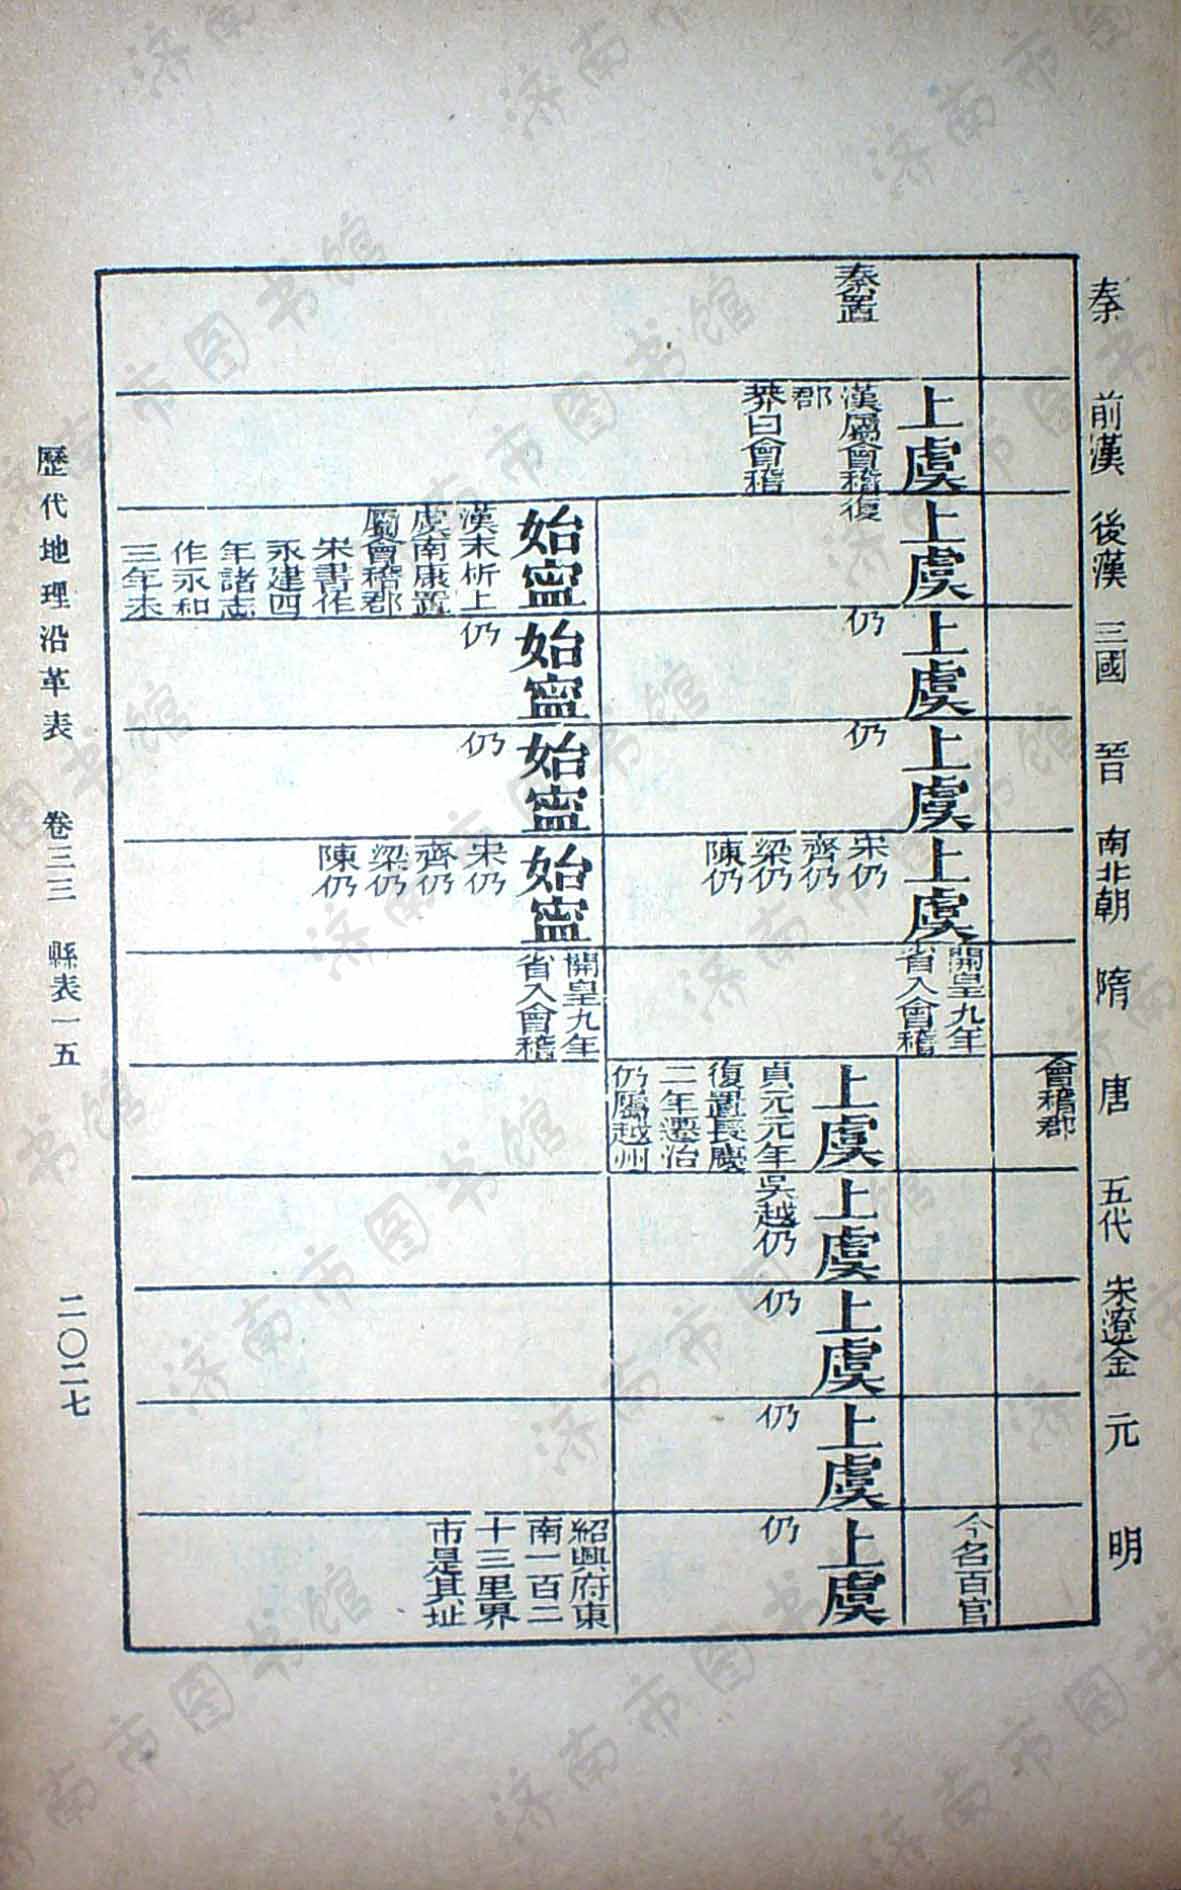 秦
前漢
後漢
三國
晉
南北朝
隋
唐
五代
宋遼金
元
明
會稽郡
秦置
上虞
漢屬會稽
郡
莽曰會稽
上虞
復
上虞
仍
上虞
仍
上虞
宋仍
齊仍
梁仍
陳仍
開皇九年
省入會稽
今名百官
上虞
貞元元年
復置長慶
二年遷治
仍屬越州
上虞
吳越仍
上虞
仍
上虞
仍
上虞
仍
始寧
漢末析上
虞南康置
屬會稽郡
宋書作
永建四
年諸志
作永和
三年本
始寧
仍
始寧
仍
始寧
宋仍
齊仍
梁仍
陳仍
開皇九年
省入會稽
紹興府東
南一百二
十三里界
市是其址
歷代地理沿革表 卷三三 縣表一五 二〇二七
济南市图书馆